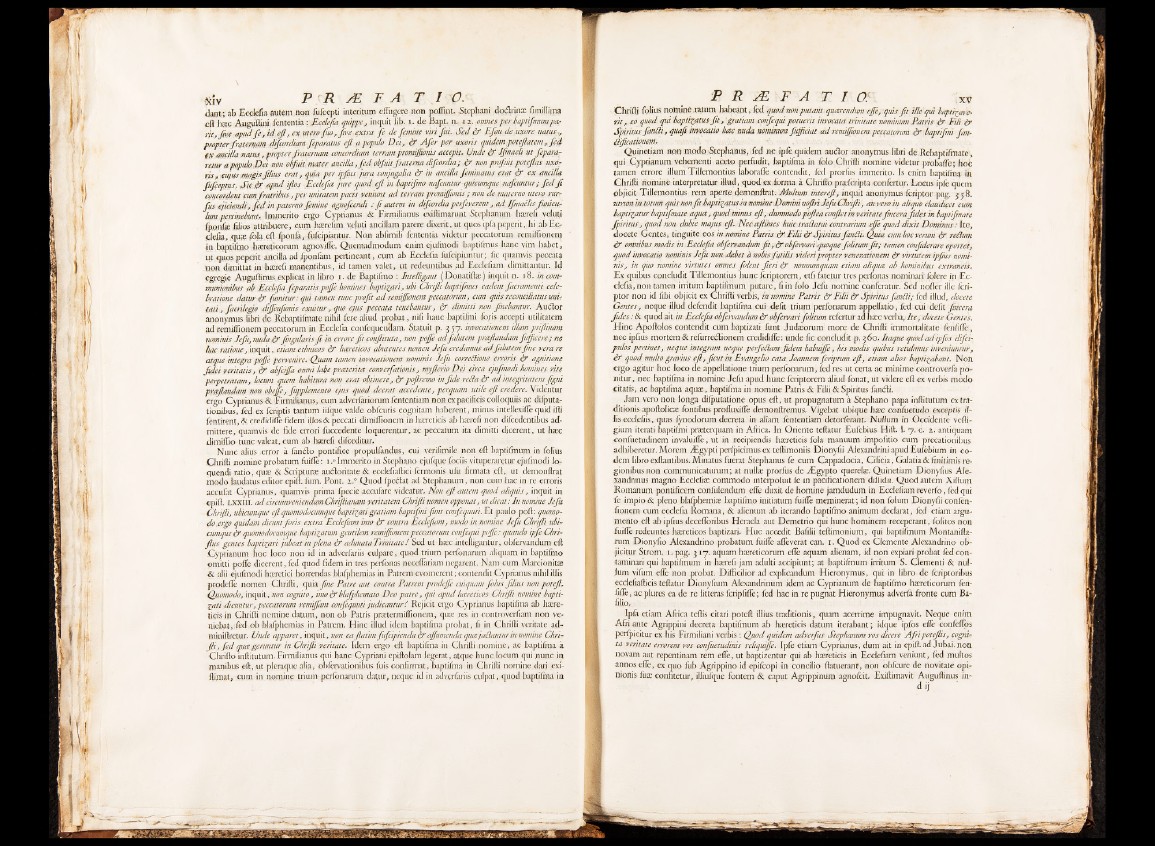 xiv PRÆFATIO.
dant; ab Ecclesia autem non suscepti interitum effugere non possint. Stephani doctrinæ simillima
est hæc Augustini sententia: Ecclesia quippe, inquit lib. 1. de Bapt. n. 12. omnes per baptismum pa-
rit, sive apud se, id est, ex utero suo, sive extra se de semine viri sui. Sed & Esau de uxore natus,
propter fraternam discordiam separatus est a populo Dei, & Aser per uxoris quidem potestatem, sed
ex ancilla natus, propter fraternam concordiam terram promissionis accepit. Unde & Ismaeli ut separa-
retur a populo Dei non obfuit mater ancilla, sed obfuit fraterna discordia; & non profuit potestas uxo-
ris, cujus magis filius erat, quia per ipsius jura conjugalia & in ancilla seminatus erat & ex ancilla
susceptus. Sic & apud istos Ecclesiæ jure quod est in baptismo nascuntur quicumque nascuntur; sed si
concordent cum fratribus, per unitatem pacis veniunt ad terram promissionis; non de materno utero rur-
sus ejiciendi, sed in paterno semine agnoscendi: si autem in discordia perseverent, ad Ismaelis funicu-
lum pertinebunt. Immerito ergo Cyprianus & Firmilianus existimarunt Stephanum hæresi veluti
sponsæ filios attribuere, cum hæresim veluti ancillam parere dixerit, ut quos ipsa peperit, hi ab Ec-
clesia, quæ sola est sponsa, suscipiantur. Non absimili sententia videtur peccatorum remissionem
in baptismo hæreticorum agnovisse. Quemadmodum enim ejusmodi baptismus hanc vim habet,
ut quos peperit ancilla ad sponsam pertineant, cum ab Ecclesia suscipiuntur; sic quamvis peccata
non dimittat in hæresi manentibus, id tamen valet, ut redeuntibus ad Ecclesiam dimittantur. Id
egregie Augustinus explicat in libro 1. de Baptismo: Intelligant (Donatistæ) inquit n. 18. in com-
munionibus ab Ecclesia separatis posse homines baptizari, ubi Christi baptismus eadem sacramenti cele-
bratione datur & sumitur: qui tamen tunc prosit ad remissionem peccatorum, cum quis reconciliatus uni-
tati, sacrilegio dissensionis exuitur, quo ejus peccata tenebantur, & dimitti non sinebantur. Auctor
anonymus libri de Rebaptismate nihil fere aliud probat, nisi hanc baptismi foris accepti utilitatem
ad remissionem peccatorum in Ecclesia consequendam. Statuit p. 357. invocationem illam præstitam
nominis Jesu, nuda & singularis si in errore sit constituta, non posse ad salutem præstandam sufficere; ne
hac ratione, inquit, etiam ethnicos & hæreticos abutentes nomen Jesu credamus ad salutem sine vera re
atque integra posse pervenire. Quam tamen invocationem nominis Jesu correctione erroris & agnitione
fidei veritatis, & abscissa omni labe præteritæ conversationis, mysterio Dei circa ejusmodi homines rite
perpetratam, locum quem habitura non erat obtinere, & postremo in fide recta & ad integritatem signi
præstandam non obesse, supplemento ejus quod deerat accedente, perquam utile est credere. Videntur
ergo Cyprianus & Firmilianus, cum adversariorum sententiam non ex pacificis colloquiis ac disputa-
tionibus, sed ex scriptis tantum iisque valde obscuris cognitam haberent, minus intellexisse quid isti
sentirent, & credidisse fidem illos & peccati dimissionem in hæreticis ab hæresi non discedentibus ad-
mittere, quamvis de fide errori succedente loquerentur, ac peccatum ita dimitti dicerent, ut hæc
dimissio tunc valeat, cum ab hæresi disceditur.
Nunc alius error a sancto pontifice propulsandus, cui verisimile non est baptismum in solius
Christi nomine probatum fuisse: 1.° Immerito in Stephano ejusque sociis vituperaretur ejusmodi lo-
quendi ratio, quæ & Scripturæ auctoritate & ecclesiastici sermonis usu firmata est, ut demonstrat
modo laudatus editor epist. sum. Pont. 2.° Quod spectat ad Stephanum, non cum hac in re erroris
accusat Cyprianus, quamvis prima specie accusare videatur. Non est autem quod aliquis, inquit in
epist. LXXIII. ad circumveniendam Christianam veritatem Christi nomen opponat, ut dicat: In nomine Jesu
Christi, ubicumque et quomodocumque baptizati gratiam baptismi sunt consequuti. Et paulo post: quomo-
do ergo quidam dicunt foris extra Ecclesiam imo & contra Ecclesiam, modo in nomine Jesu Christi ubi-
cumque & quomodocumque baptizatum gentilem remissionem peccatorum consequi posse: quando ipse Chri-
stus gentes baptizari jubeat in plena & adunata Trinitate? Sed ut hæc intelligantur, observandum est
Cyprianum hoc loco non id in adversariis culpare, quod trium personarum aliquam in baptismo
omitti posse dicerent, sed quod fidem in tres personas necessariam negarent. Nam cum Marcionitæ
& alii ejusmodi hæretici horrendas blasphemias in Patrem evomerent; contendit Cyprianus nihil illis
prodesse nomen Christi, quia sine Patre aut contra Patrem prodesse cuiquam solus filius non potest.
Quomodo, inquit, non cognito, imo & blasphemato Deo patre, qui apud hæreticos Christi nomine bapti-
zati dicuntur, peccatorum remissam consequuti judicantur? Rejicit ergo Cyprianus baptisma ab hære-
ticis in Christi nomine datum, non ob Patris prætermissionem, quæ res in controversiam non ve-
niebat, sed ob blasphemias in Patrem. Hinc illud idem baptisma probat, si in Christi veritate ad-
ministretur. Unde apparet, inquit, non ea statim suscipienda & assumenda quæ jactantur in nomine Chri-
sti, sed quæ geruntur in Christi veritate. Idem ergo est baptisma in Christi nomine, ac baptisma a
Christo institutum. Firmilianus qui hanc Cypriani epistolam legerat, atque hunc locum qui nunc in
manibus est, ut pleraque alia, observationibus suis confirmat, baptisma in Christi nomine dari exi-
stimat, cum in nomine trium personarum datur, neque id in adversariis culpat, quod baptisma in
PRÆFATIO. xv
Christi solius nomine ratum habeant, sed quod non putant quærendum esse, quis sit ille qui baptizave-
rit, eo quod qui baptizatus sit, gratiam consequi potuerit invocata trinitate nominum Patris & Filii &
Spiritus sancti, quasi invocatio hæc nuda nominum sufficiat ad remissionem peccatorum & baptismi san-
ctificationem.
Quinetiam non modo Stephanus, sed ne ipse quidem auctor anonymus libri de Rebaptismate,
qui Cyprianum vehementi aceto perfudit, baptisma in solo Christi nomine videtur probasse; hoc
tamen errore illum Tillemontius laborasse contendit, sed prorsus immerito. Is enim baptisma in
Christi nomine interpretatur illud, quod ex forma a Christo præscripta confertur. Locus ipse quem
objicit Tillemontius rem aperte demonstrat. Multum interest, inquit anonymus scriptor pag. 358.
utrum in totum quis non sit baptizatus in nomine Domini nostri Jesu Christi, an vero in aliquo claudicet cum
baptizatur baptismate aquæ, quod minus est, dummodo postea constet in veritate sincera fides in baptismate
spiritus, quod non dubie majus est. Nec æstimes huic tractatui contrarium esse quod dixit Dominus: Ite,
docete Gentes, tinguite eos in nomine Patris & Filii & Spiritus sancti. Quia cum hoc verum & rectum
& omnibus modis in Ecclesia observandum sit, & observari quoque solitum sit; tamen considerare oportet,
quod invocatio nominis Jesu non debet à nobis futilis videri propter venerationem & virtutem ipsius nomi-
nis, in quo nomine virtutes omnes solent fieri & nonnumquam etiam aliquæ ab hominibus extraneis.
Ex quibus concludit Tillemontius hunc scriptorem, etsi fatetur tres personas nominari solere in Ec-
clesia, non tamen irritum baptismum putare, si in solo Jesu nomine conferatur. Sed noster ille scri-
ptor non id sibi objicit ex Christi verbis, in nomine Patris & Filii & Spiritus sancti; sed illud, docete
Gentes, neque illud defendit baptisma cui desit trium personarum appellatio, sed cui desit sincera
fides: & quod ait in Ecclesia observandum & observari solitum refertur ad hæc verba, Ite, docete Gentes.
Hinc Apostolos contendit cum baptizati sunt Judæorum more de Christi immortalitate sensisse,
nec ipsius mortem & resurrectionem credidisse: unde sic concludit p. 360. Itaque quod ad ipsos disci-
pulos pertinet, neque integram neque perfectam fidem habuisse, his modis quibus retulimus inveniuntur,
& quod multo gravius est, sicut in Evangelio cata Joannem scriptum est, etiam alios baptizabant. Non
ergo agitur hoc loco de appellatione trium personarum, sed res ut certa ac minime controversa po-
nitur, nec baptisma in nomine Jesu apud hunc scriptorem aliud sonat, ut videre est ex verbis modo
citatis, ac baptisma aquæ, baptisma in nomine Patris & Filii & Spiritus sancti.
Jam vero non longa disputatione opus est, ut propugnatum à Stephano papa institutum ex tra-
ditionis apostolicæ fontibus profluxisse demonstremus. Vigebat ubique hæc consuetudo exceptis il-
lis ecclesiis, quas synodorum decreta in aliam sententiam detorserant. Nullum in Occidente vesti-
gium iterati baptismi præterquam in Africa. In Oriente testatur Eusebius Hist. l. 7. c. 2. antiquam
consuetudinem invaluisse, ut in recipiendis hæreticis sola manuum impositio cum precationibus
adhiberetur. Morem Ægypti perspicimus ex testimoniis Dionysii Alexandrini apud Eusebium in eo-
dem libro exstantibus. Minatus fuerat Stephanus se cum Cappadocia, Cilicia, Galatia & finitimis re-
gionibus non communicaturum; at nullæ prorsus de Ægypto querelæ. Quinetiam Dionysius Ale-
xandrinus magno Ecclesiæ commodo interpolut se in pacificationem dissidii. Quod autem Xistum
Romanum pontificem consulendum esse duxit de homine jamdudum in Ecclesiam reverso, sed qui
se impio & pleno blasphemiæ baptismo initiatum fuisse meminerat; id non solum Dionysii consen-
sionem cum ecclesia Romana, & alienum ab iterando baptismo animum declarat, sed etiam argu-
mento est ab ipsius decessoribus Heracla aut Demetrio qui hunc hominem receperant, solitos non
fuisse redeuntes hæreticos baptizari. Huc accedit Basilii testimonium, qui baptismum Montanista-
rum Dionysio Alexandrino probatum fuisse asseverat can. 1. Quod ex Clemente Alexandrino ob-
jicitur Strom. 1. pag. 317. aquam hæreticorum esse aquam alienam, id non expiari probat sed con-
taminari qui baptismum in hæresi jam adulti accipiunt; at baptismum irritum S. Clementi & nul-
lum visum esse non probat. Difficilior ad explicandum Hieronymus, qui in libro de scriptoribus
ecclesiasticis testatur Dionysium Alexandrinum idem ac Cyprianum de baptismo hæreticorum sen-
sisse, ac plures ea de re litteras scripsisse; sed hac in re pugnat Hieronymus adversa fronte cum Ba-
silio.
Ipsa etiam Africa testis citari potest illius traditionis, quam acerrime impugnavit. Neque enim
Afri ante Agrippini decreta baptismum ab hæreticis datum iterabant; idque ipsos esse confessos
perspicitur ex his Firmiliani verbis: Quod quidem adversus Stephanum vos dicere Afri potestis, cogni-
ta veritate errorem vos consuetudinis reliquisse. Ipse etiam Cyprianus, dum ait in epist. ad Jubai. non
novam aut repentinam rem esse, ut baptizentur qui ab hæreticis in Ecclesiam veniunt, sed multos
annos esse, ex quo sub Agrippino id episcopi in concilio statuerant, non obscure de novitate opi-
nionis suæ confitetur, illiusque fontem & caput Agrippinum agnoscit. Existimavit Augustinus in-
d ij